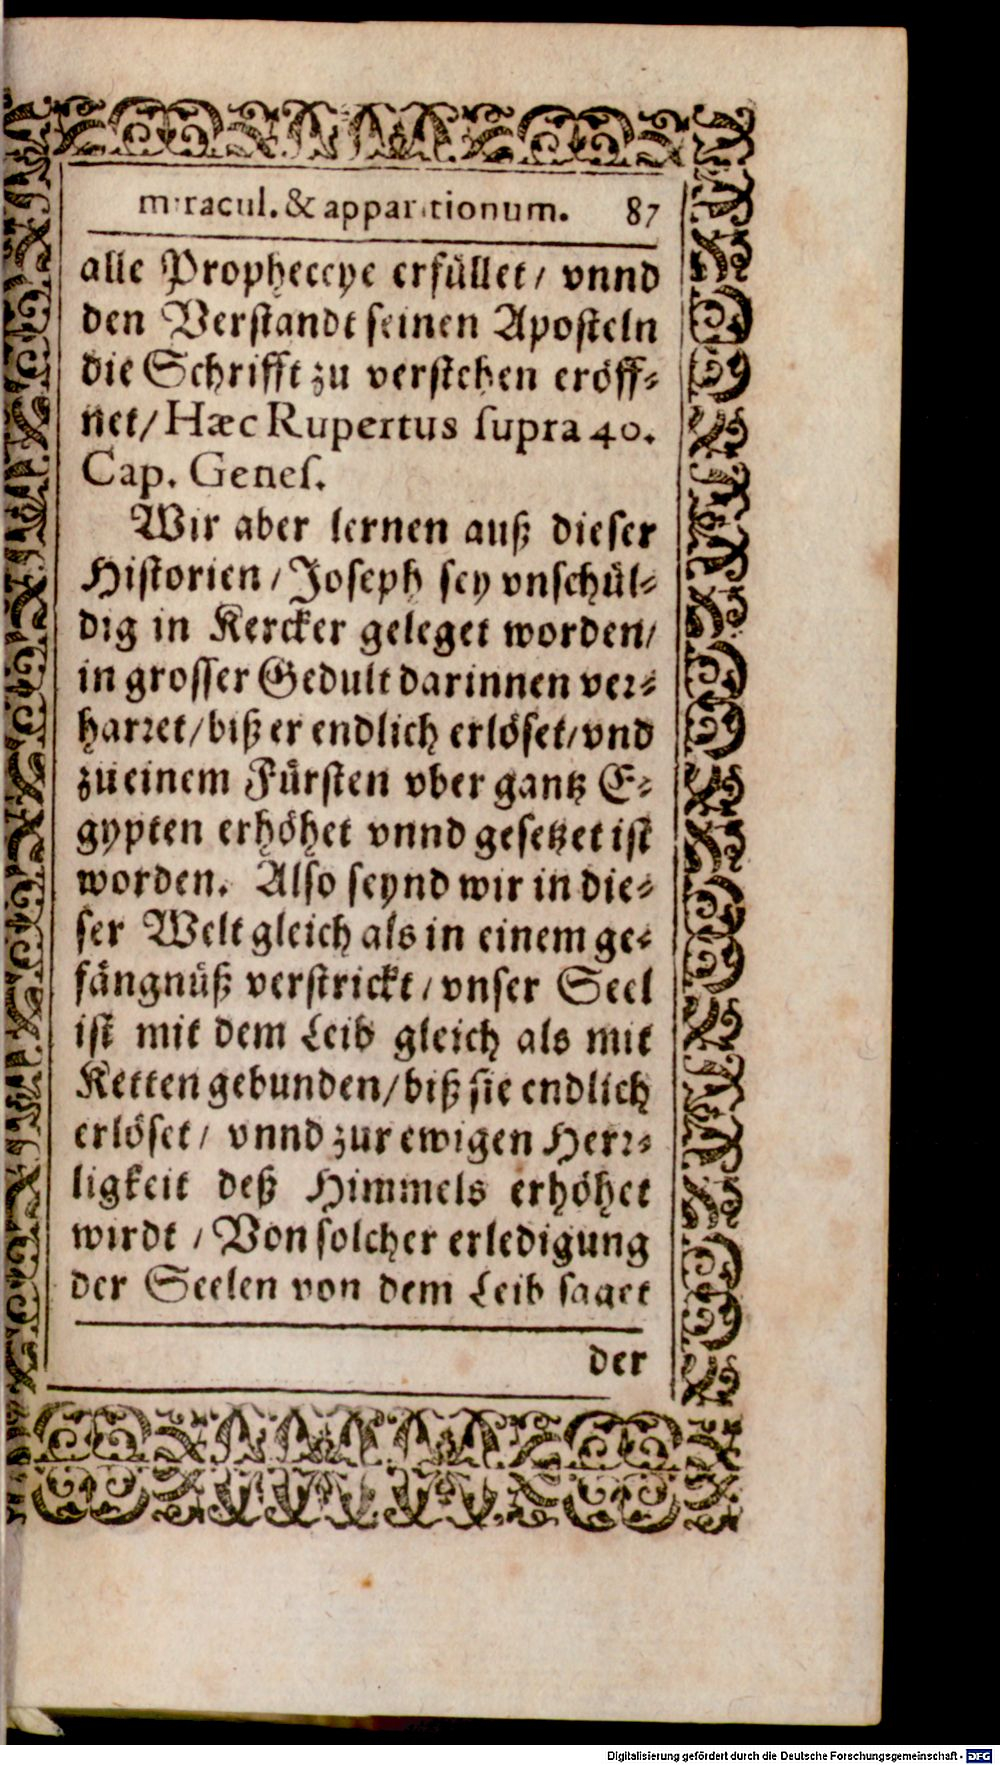 miracul. & apparitionum. 87
alle Propheceye erfüllet/ vnnd
den Verstandt seinen Aposteln
die Schrifft zu verstehen eröff-
net/ Hæc Rupertus supra 40.
Cap. Genes.
Wir aber lernen auß dieser
Historien/ Joseph sey vnschül-
dig in Kercker geleget worden/
in grosser Gedult darinnen ver-
harret/ biß er endlich erlöset/ vnd
zu einem Fürsten vber gantz E-
gypten erhöhet vnnd gesetzet ist
worden. Also seynd wir in die-
ser Welt gleich als in einem ge-
fängnüß verstrickt/ vnser Seel
ist mit dem Leib gleich als mit
Ketten gebunden/ biß sie endlich
erlöset/ vnnd zur ewigen Herr-
ligkeit deß Himmels erhöhet
wirdt/ Von solcher erledigung
der Seelen von dem Leib saget
der
Digitalisierung gefördert durch die Deutsche Forschungsgemeinschaft - DFG